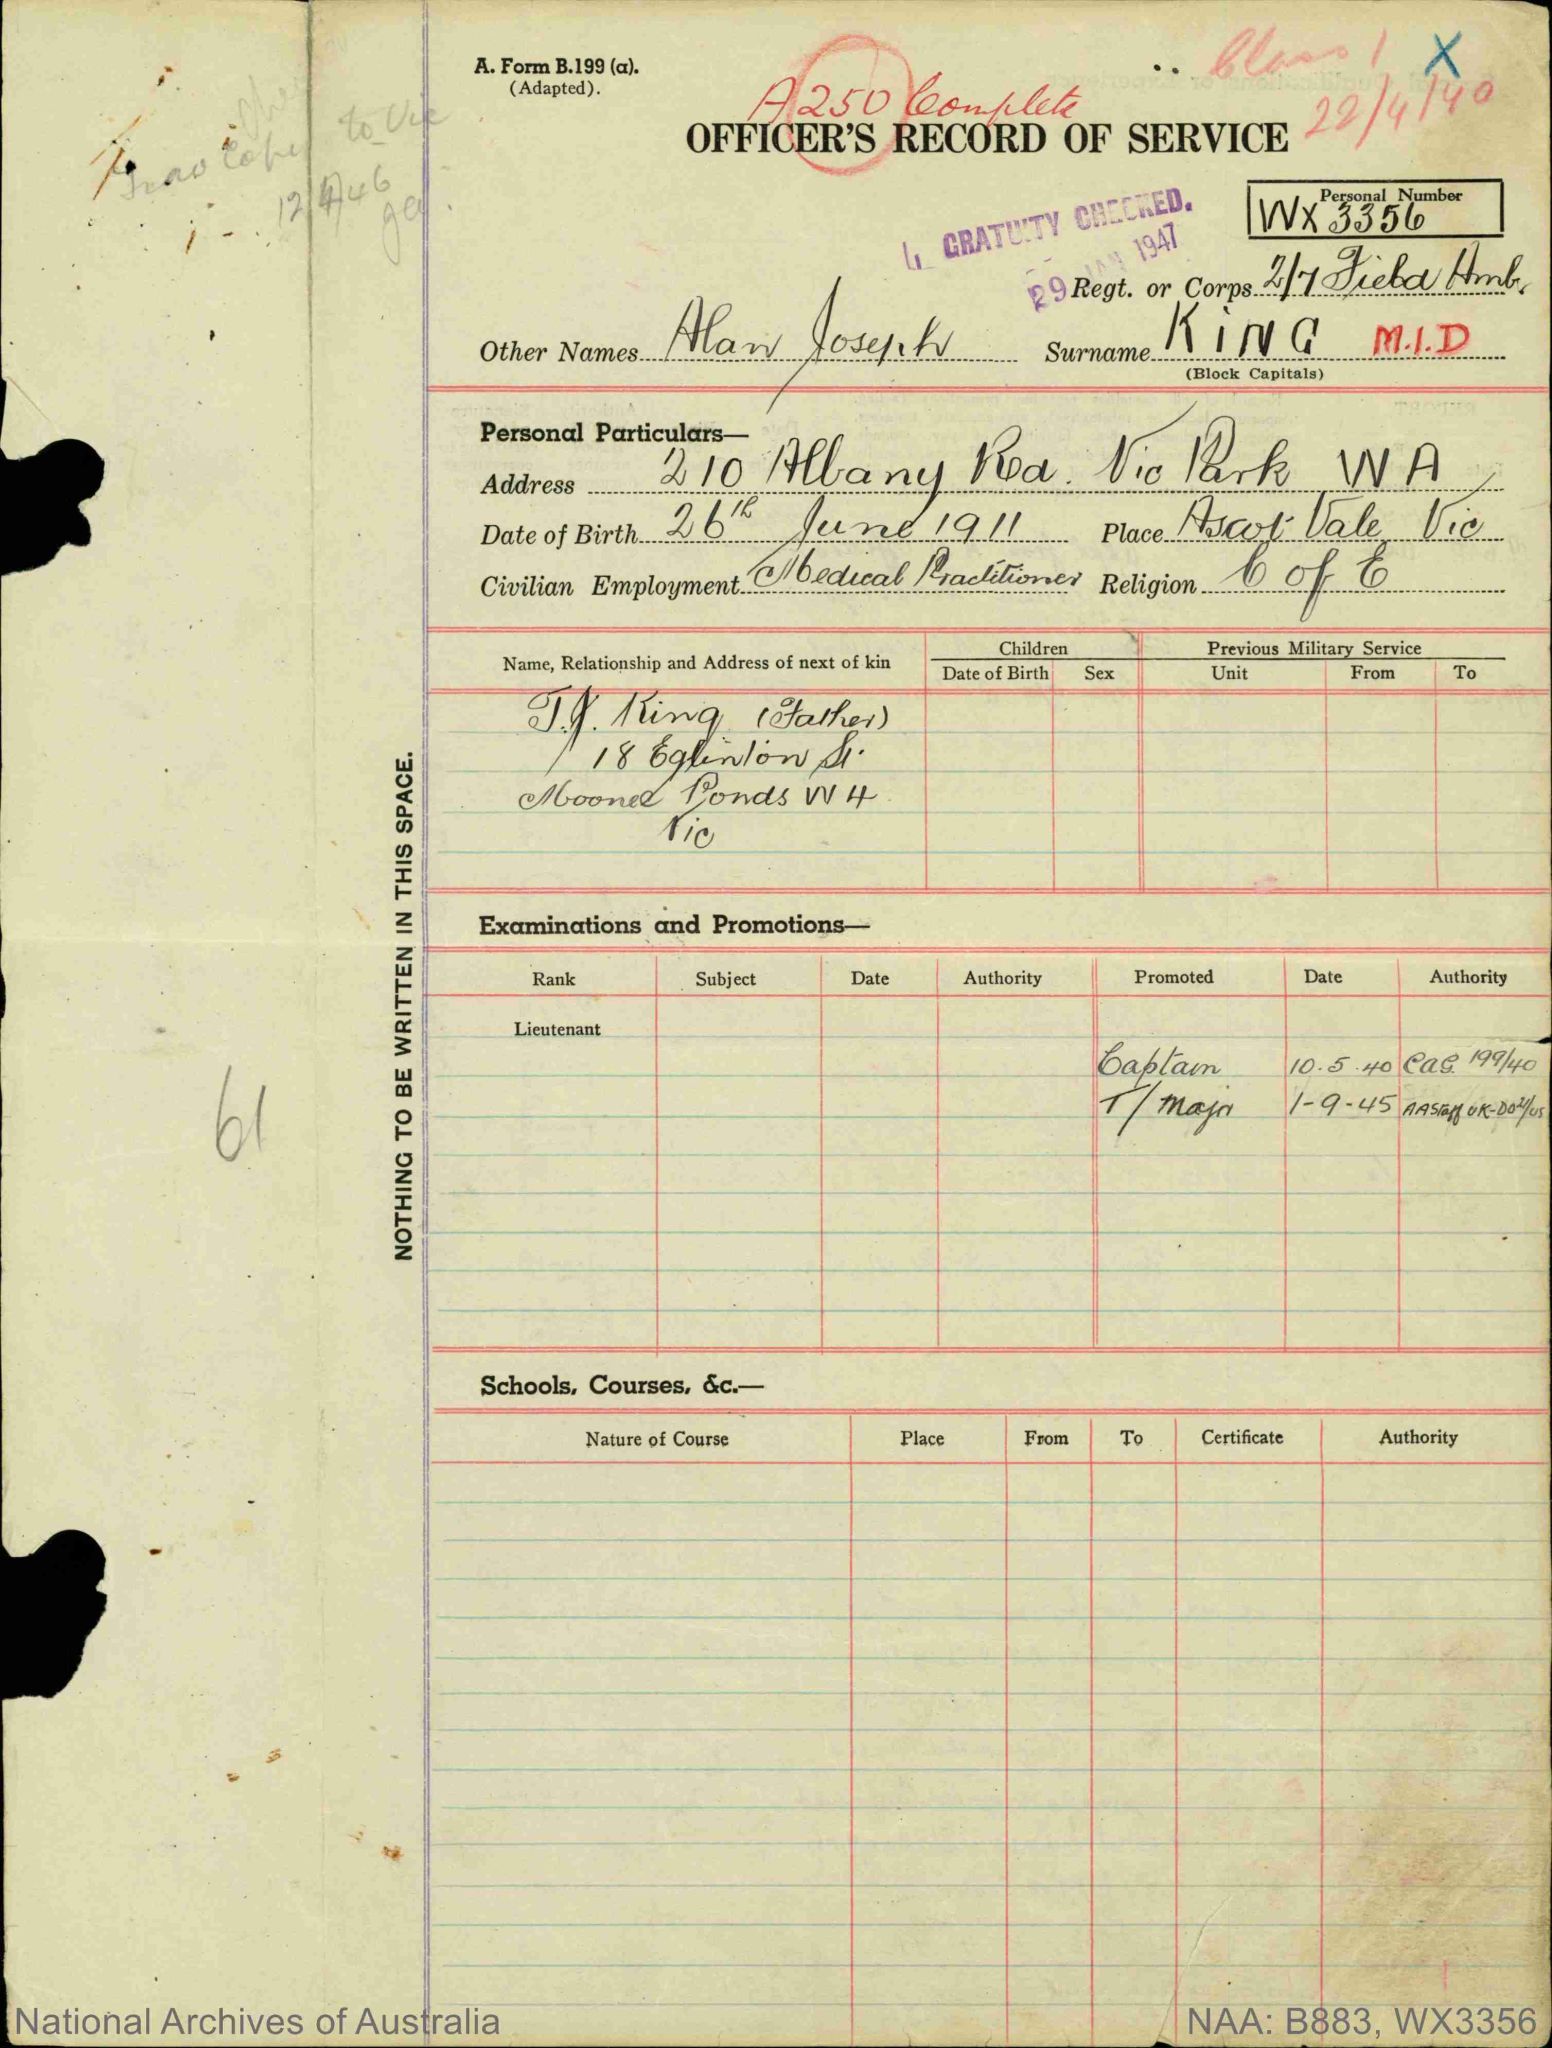 A. Form B.199 (a).
(Adapted).
Class 1 X
A250 Complete
22/4/40
OFFICER'S RECORD OF SERVICE
to Vic
12/4/46
Personal Number
WX 3356
GRATUITY CHECKED.
29 JAN 1947
Regt. or Corps 2/7 Field Amb.
Other Names Alan Joseph Surname KING M.I.D
(Block Capitals)
Personal Particulars—
Address 210 Albany Rd. Vic Park WA
Date of Birth 26th June 1911 Place Ascot Vale Vic
Civilian Employment Medical Practitioner Religion C of E
Name, Relationship and Address of next of kin Children Previous Military Service
Date of Birth Sex Unit From To
T.J. King (Father)
18 Eglinton St.
Moonee Ponds W4
Vic
NOTHING TO BE WRITTEN IN THIS SPACE.
61
Examinations and Promotions—
Rank Subject Date Authority Promoted Date Authority
Lieutenant
Captain 10.5.40 CAG. 199/40
T/Major 1-9-45 AAStaff UK-DO
Schools, Courses, &c.—
Nature of Course Place From To Certificate Authority
National Archives of Australia NAA: B883, WX3356